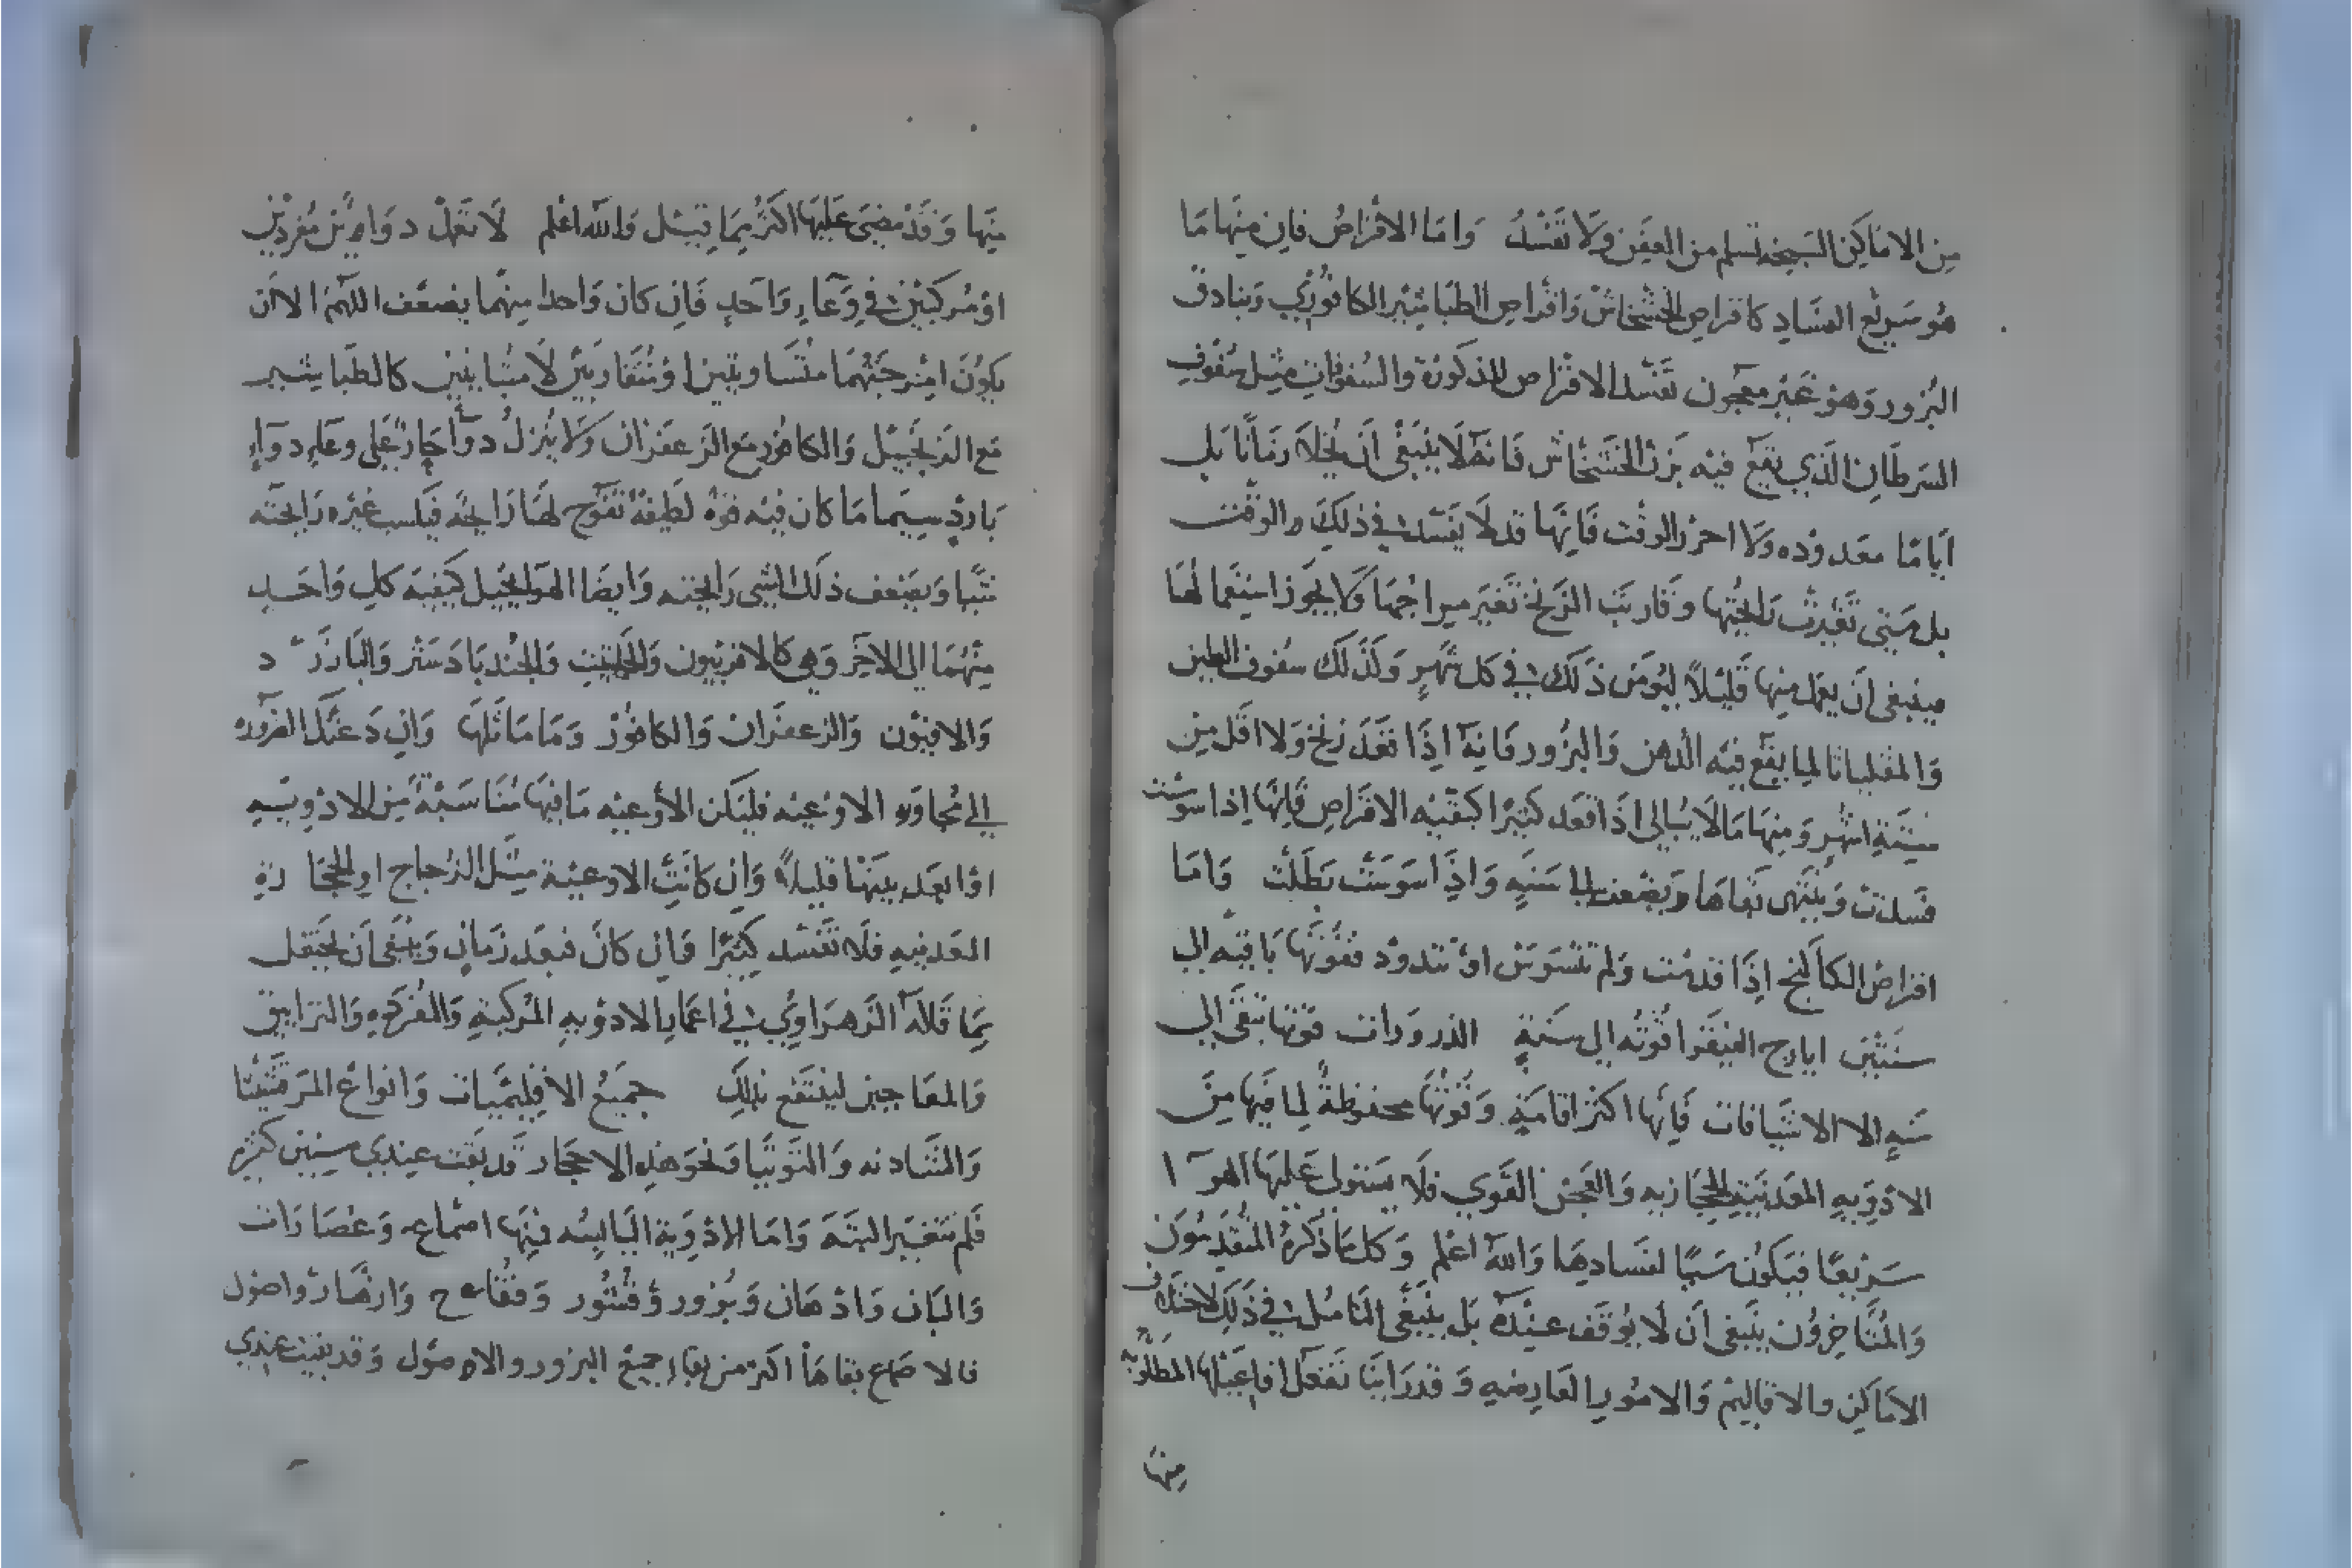 من الاماكن السبخه تسلم من العفن ولا تفسد واما الاقراص فان منها ما
هو سريع الفساد كاقراص الخشخاش واقراص الطباشير الكافوري وبنادق
البزور وهو غير معجون تفسد الاقراص المذكورة والسفوفات مثل سفوف
السرطان الذي يقع فيه بزر الخشخاش فانه لا ينبغي ان يخلا زمانا بل
اياما معدوده ولا احرر الوقت فانها قد لا يفسد في ذلك والوقت
بل متى تغيرت رايحتها وقاربت الزنخ تغير مزاجها ولا يجوز استعمالها
فينبغي ان يعمل منها قليلا ليومن ذلك في كل شهر وكذلك سفوف الطين
والمقلياثا لما يقع فيه الدهن والبزور فانه اذا قعد زنخ ولا اقل من
ستة اشهر ومنها ما لا يبالي اذا قعد كثيرا كبقية الاقراص فانها اذا سوست
فسدت وينتهى بقاها ويضعف الى سنه واذا سوست بطلت واما
اقراص الكاكنج اذا قدمت ولم تسوس او تدود فقوتها باقيه الى
سنتين ايارج الفيقرا قوته الى سنة الذرورات قوتها تبقى الى
سنه الا الاشيافات فانها اكثر اقامة وقوتها محفوظة لما فيها من
الادويه المعدنية الحجازيه والعجن القوي فلا يستولى عليها الهوا
سريعا فيكون سببا لفسادها والله اعلم وكل ما ذكره المتقدمون
والمتاخرون ينبغى ان لا يوقف عنده بل ينبغى التامل في ذلك لاختلاف
الاماكن والاقاليم والامور العارضه وقد راينا تفعل افاعيلها المطلوبه
منها
منها وقد مضى عليها اكثر مما قيل والله اعلم لا تعمل دوايين مفردين
او مركبين في وعاء واحد فان كان واحدا منهما يضعف اللهم الا ان
يكون امزجتهما متساويتين او متقاربتين لا متباينين كالطباشير
مع الزنجبيل والكافور مع الزعفران ولا ينزل دوا حار على وعاء دواء
بارد سيما ما كان فيه قوة لطيفة تفوح لها رايحة فيكسب غيره رايحته
شيا ويضعف ذلك الشي رايحته وايضا الهوا يحيل كيفية كل واحد
منهما الى الاخر وهي كالافربيون والحلتيت والجندبادستر والبارزد
والافيون والزعفران والكافور وما ماثلها وان دعتك الضروره
الى مجاورة الاوعيه فليكن الأوعيه ما فيها مناسبة من الادويه
او ابعد بينها قليلا وان كانت الاوعية مثل الزجاج او الحجارة
المعدنيه فلا تفسد كثيرا فان كان فبعد زمان وينبغى ان تحتفل
بما قاله الزهراوي في اعمار الادويه المركبة والمفرده والترايق
والمعاجين لينتفع بذلك جميع الاقليميات وانواع المرقشيثا
والشاذنه والتوتيا ونحو هذه الاحجار قد بقت عندي سنين كثيره
فلم تتغير البتة واما الادوية اليابسه فمنها اصماع وعصارات
والبان وادهان وبزور وقشور وفقاح وازهار واصول
فالاصماع بقاها اكثر من بقا جميع البزور والاصول وقد بقيت عندي